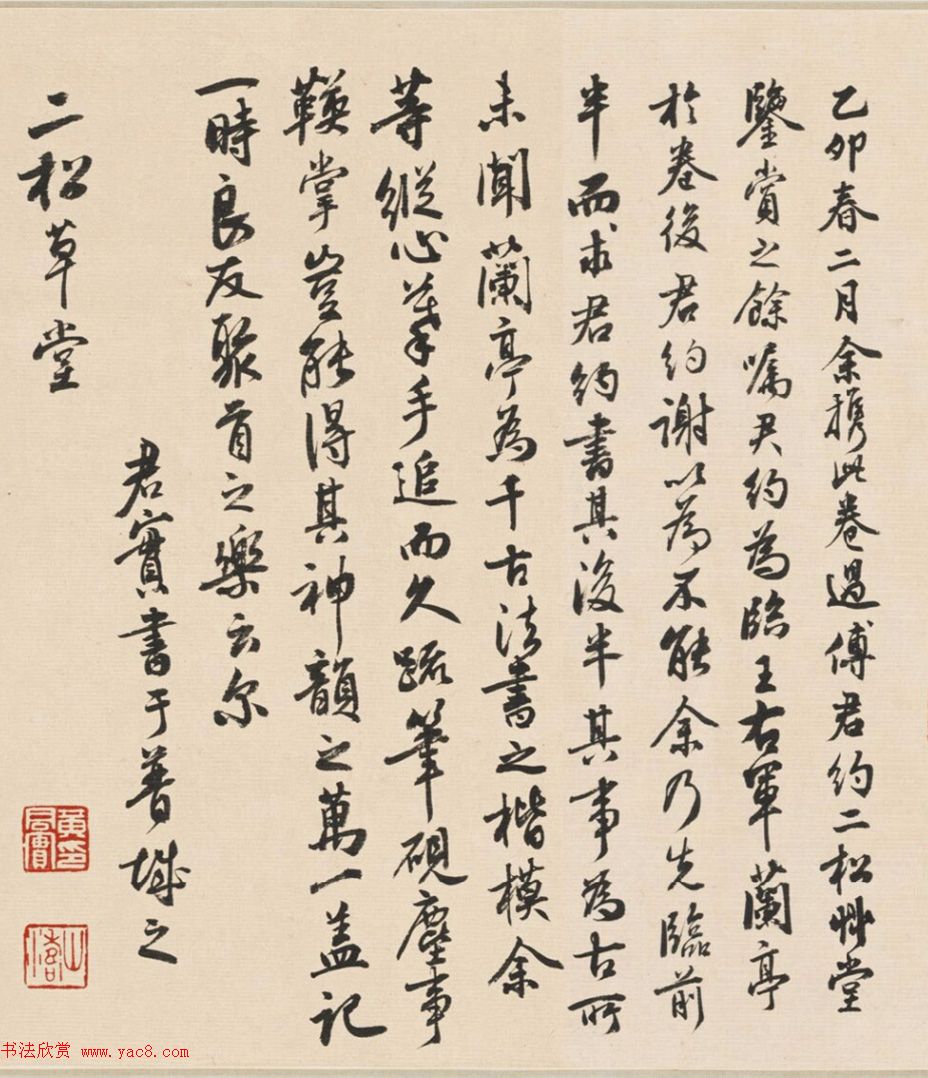 乙卯春二月余携此卷過傅君約二松艸堂
鑒賞之餘囑君約為臨王右軍蘭亭
於卷後君約謝以為不能余乃先臨前
半而求君約書其後半其事為古所
未聞蘭亭為千古法書之楷模余
等縱心摹手追而久疏筆硯塵事
鞅掌豈能得其神韻之萬一蓋記
一時良友聚首之樂云尔
君實書于普城之
二松草堂
黃君實印
书法欣赏 www.yac8.com